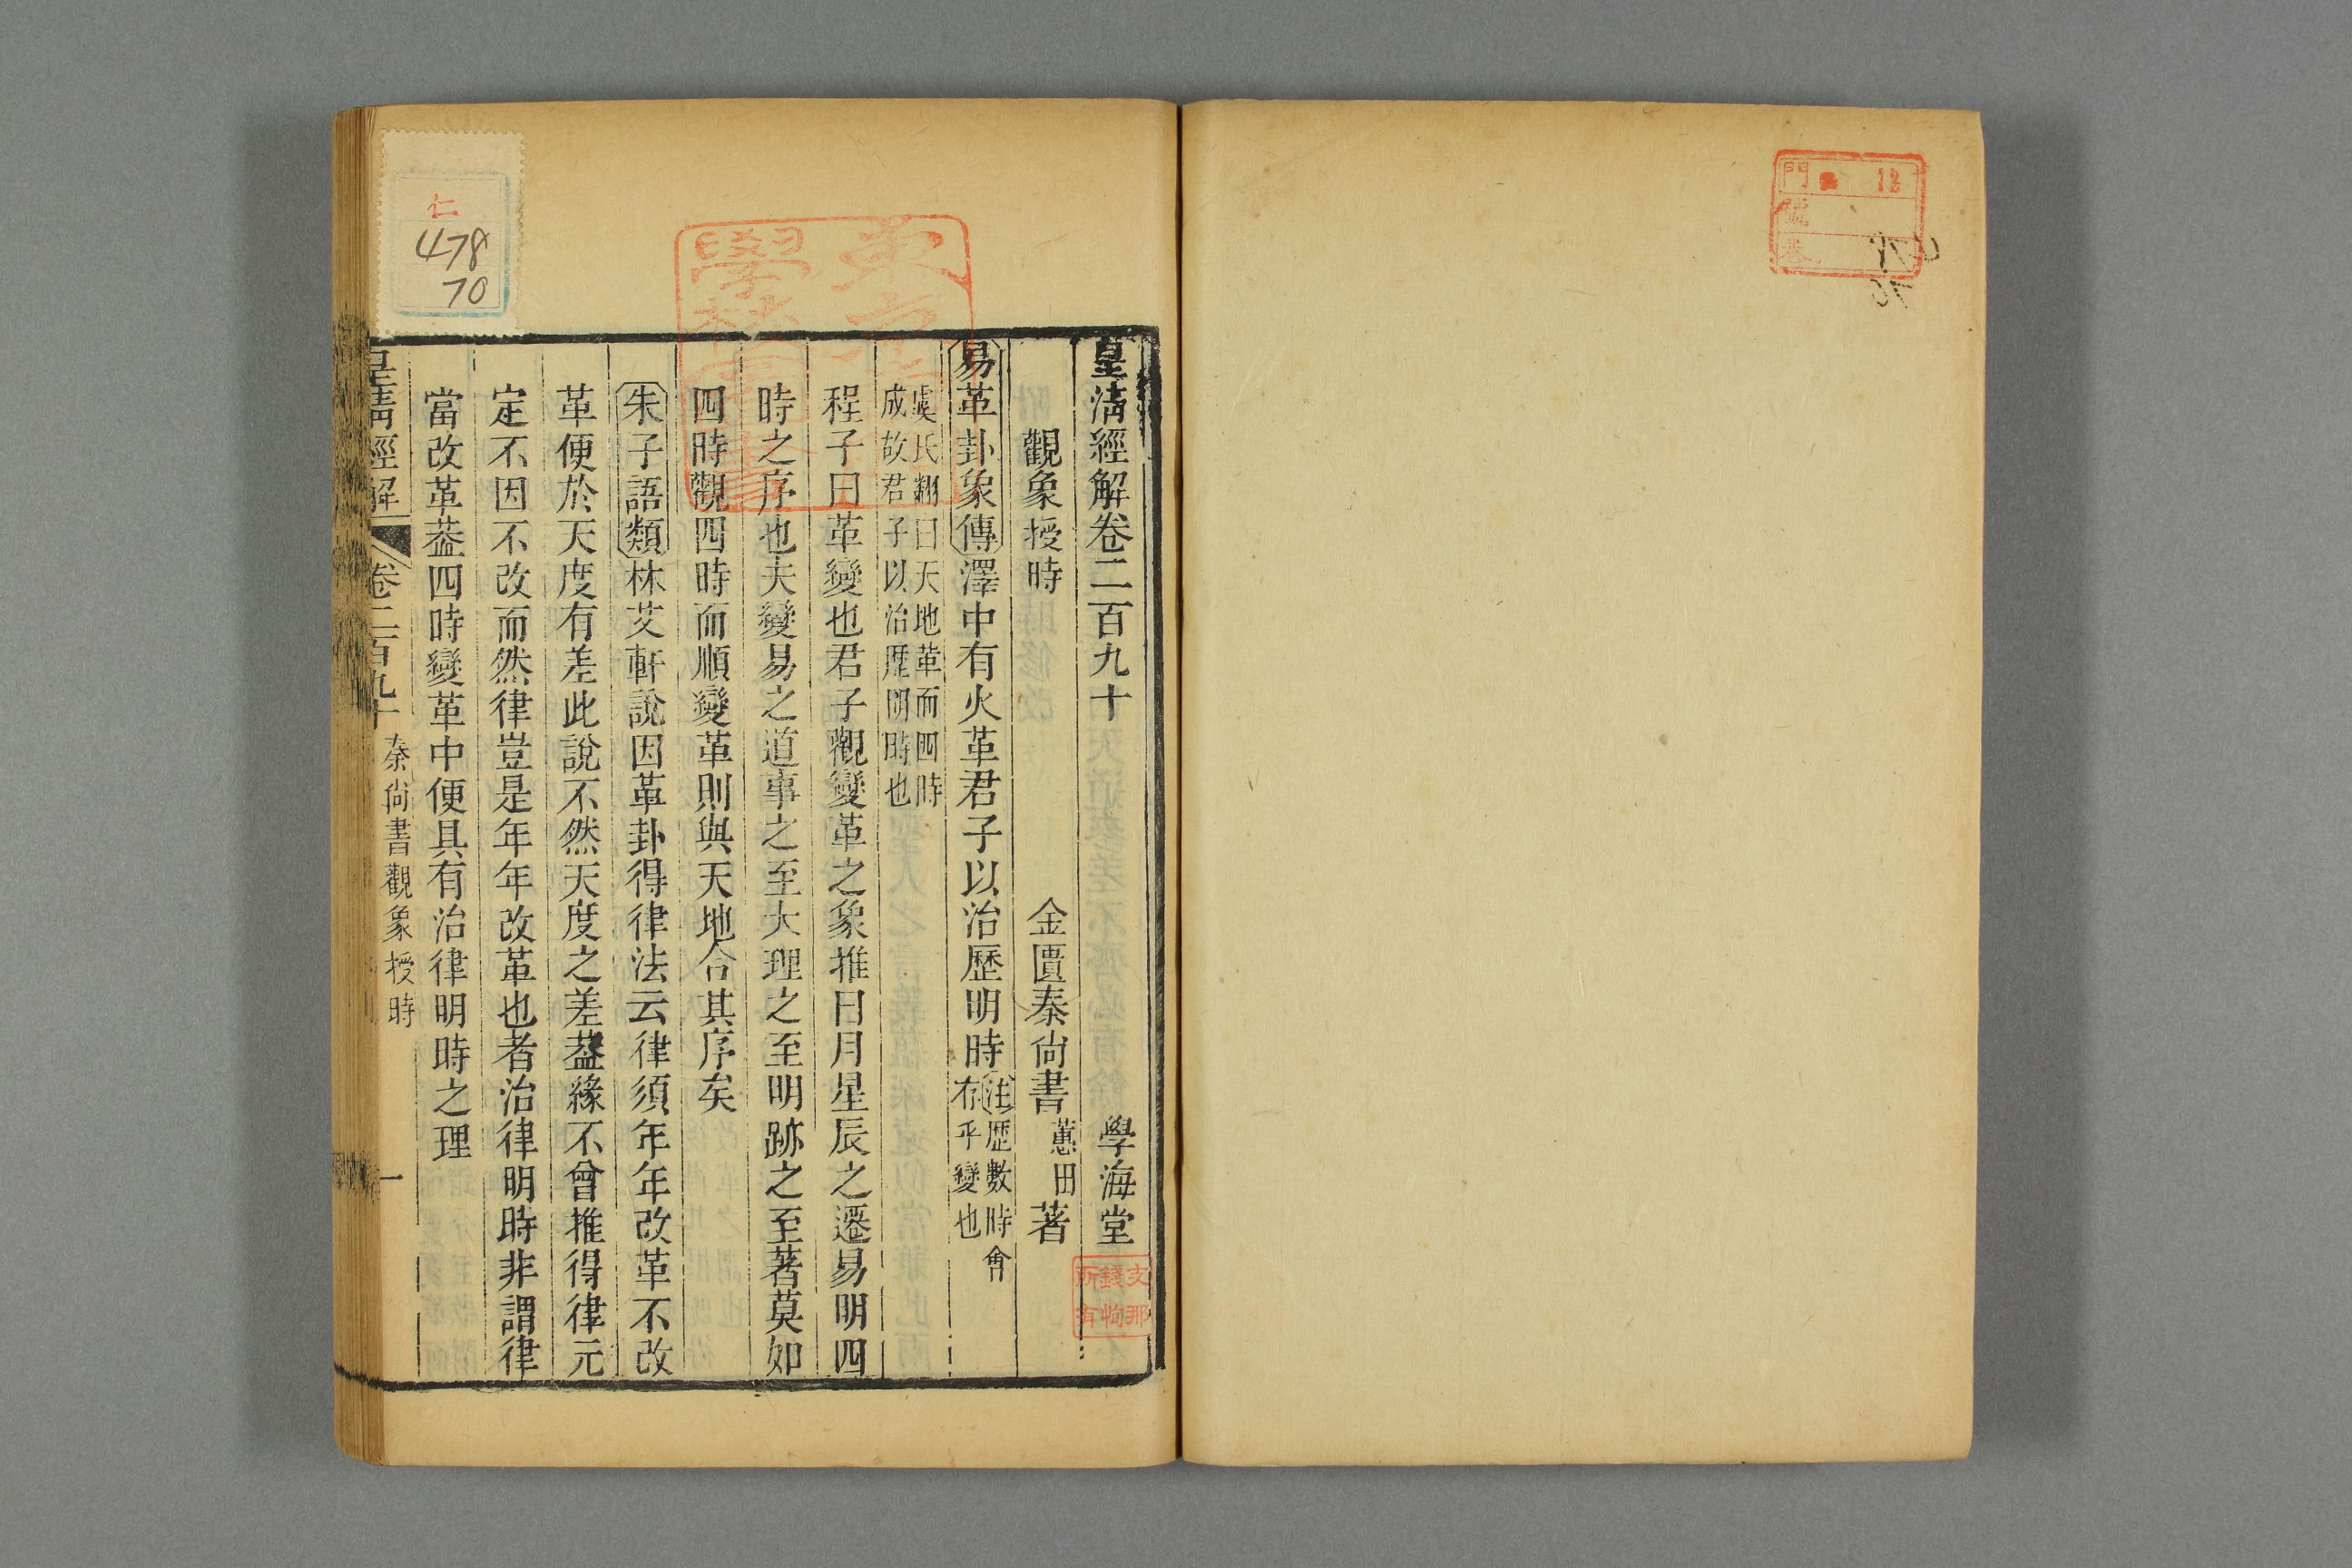 門 12
號
卷
皇清經解卷二百九十
學海堂
觀象授時
金匱秦尚書蕙田著
易革卦象傳澤中有火革君子以治歷明時注歴數時會
存乎變也
虞氏翻曰天地革而四時
成故君子以治歴明時也
程子曰革變也君子觀變革之象推日月星辰之遷易明四
時之序也夫變易之道事之至大理之至明跡之至著莫如
四時觀四時而順變革則與天地合其序矣
朱子語類林艾軒說因革卦得律法云律須年年改革不改
革便於天度有差此說不然天度之差葢緣不曾推得律元
定不因不改而然律豈是年年改革也者治律明時非謂律
當改革葢四時變革中便具有治律明時之理
皇清經解
卷二百九十
秦尚書觀象授時
一
支那
錢恂
所有
仁
478
70